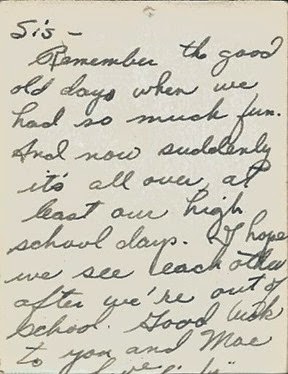 Sis -
Remember the good
old days when we
had so much fun.
And now suddenly
it's all over, at
least our high
school days. I hope
we see each other
after we're out of
school. Good luck
to you and Mac